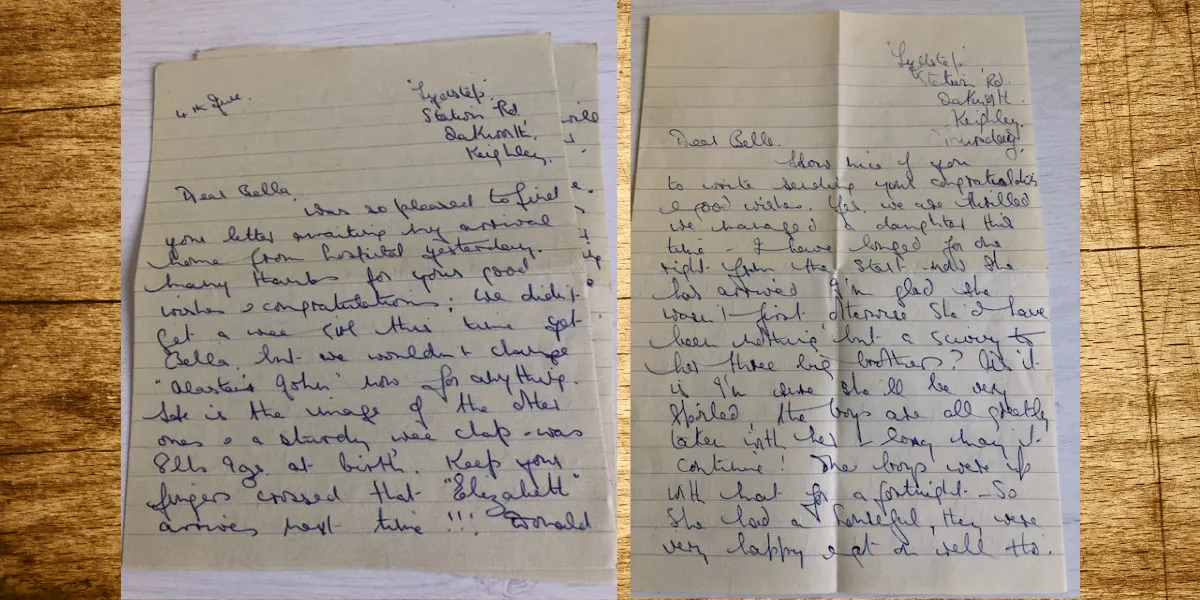 4th June.
'Lydstep'
Station Rd.
Oakworth.
Keighley.
Dear Bella,
was so pleased to find
your letter awaiting my arrival
home from hospital yesterday.
Many thanks for your good
wishes & congratulations. We didn't
get a wee girl this time yet
Bella, but we wouldn't change
"Alastair John" now for anything.
He is the image of the other
ones & a sturdy wee chap - was
8lbs 9ozs at birth. Keep your
fingers crossed that "Elizabeth"
arrives next time !!! Donald
'Lydstep'
Station Rd.
Oakworth.
Keighley.
Thursday.
Dear Bella.
How nice of you
to write sending your congratulations
& good wishes. Yes, we are thrilled
we managed a daughter this
time - I have longed for one
right from the start. Now she
has arrived I'm glad she
wasn't first otherwise she'd have
been nothing but a to
her three big brothers? As it
is I'm sure she'll be very
spoiled, the boys are all greatly
taken with her & long may it
continue! The boys were up
with for a fortnight - So
she had a houseful, they were
very happy & got on well tho'